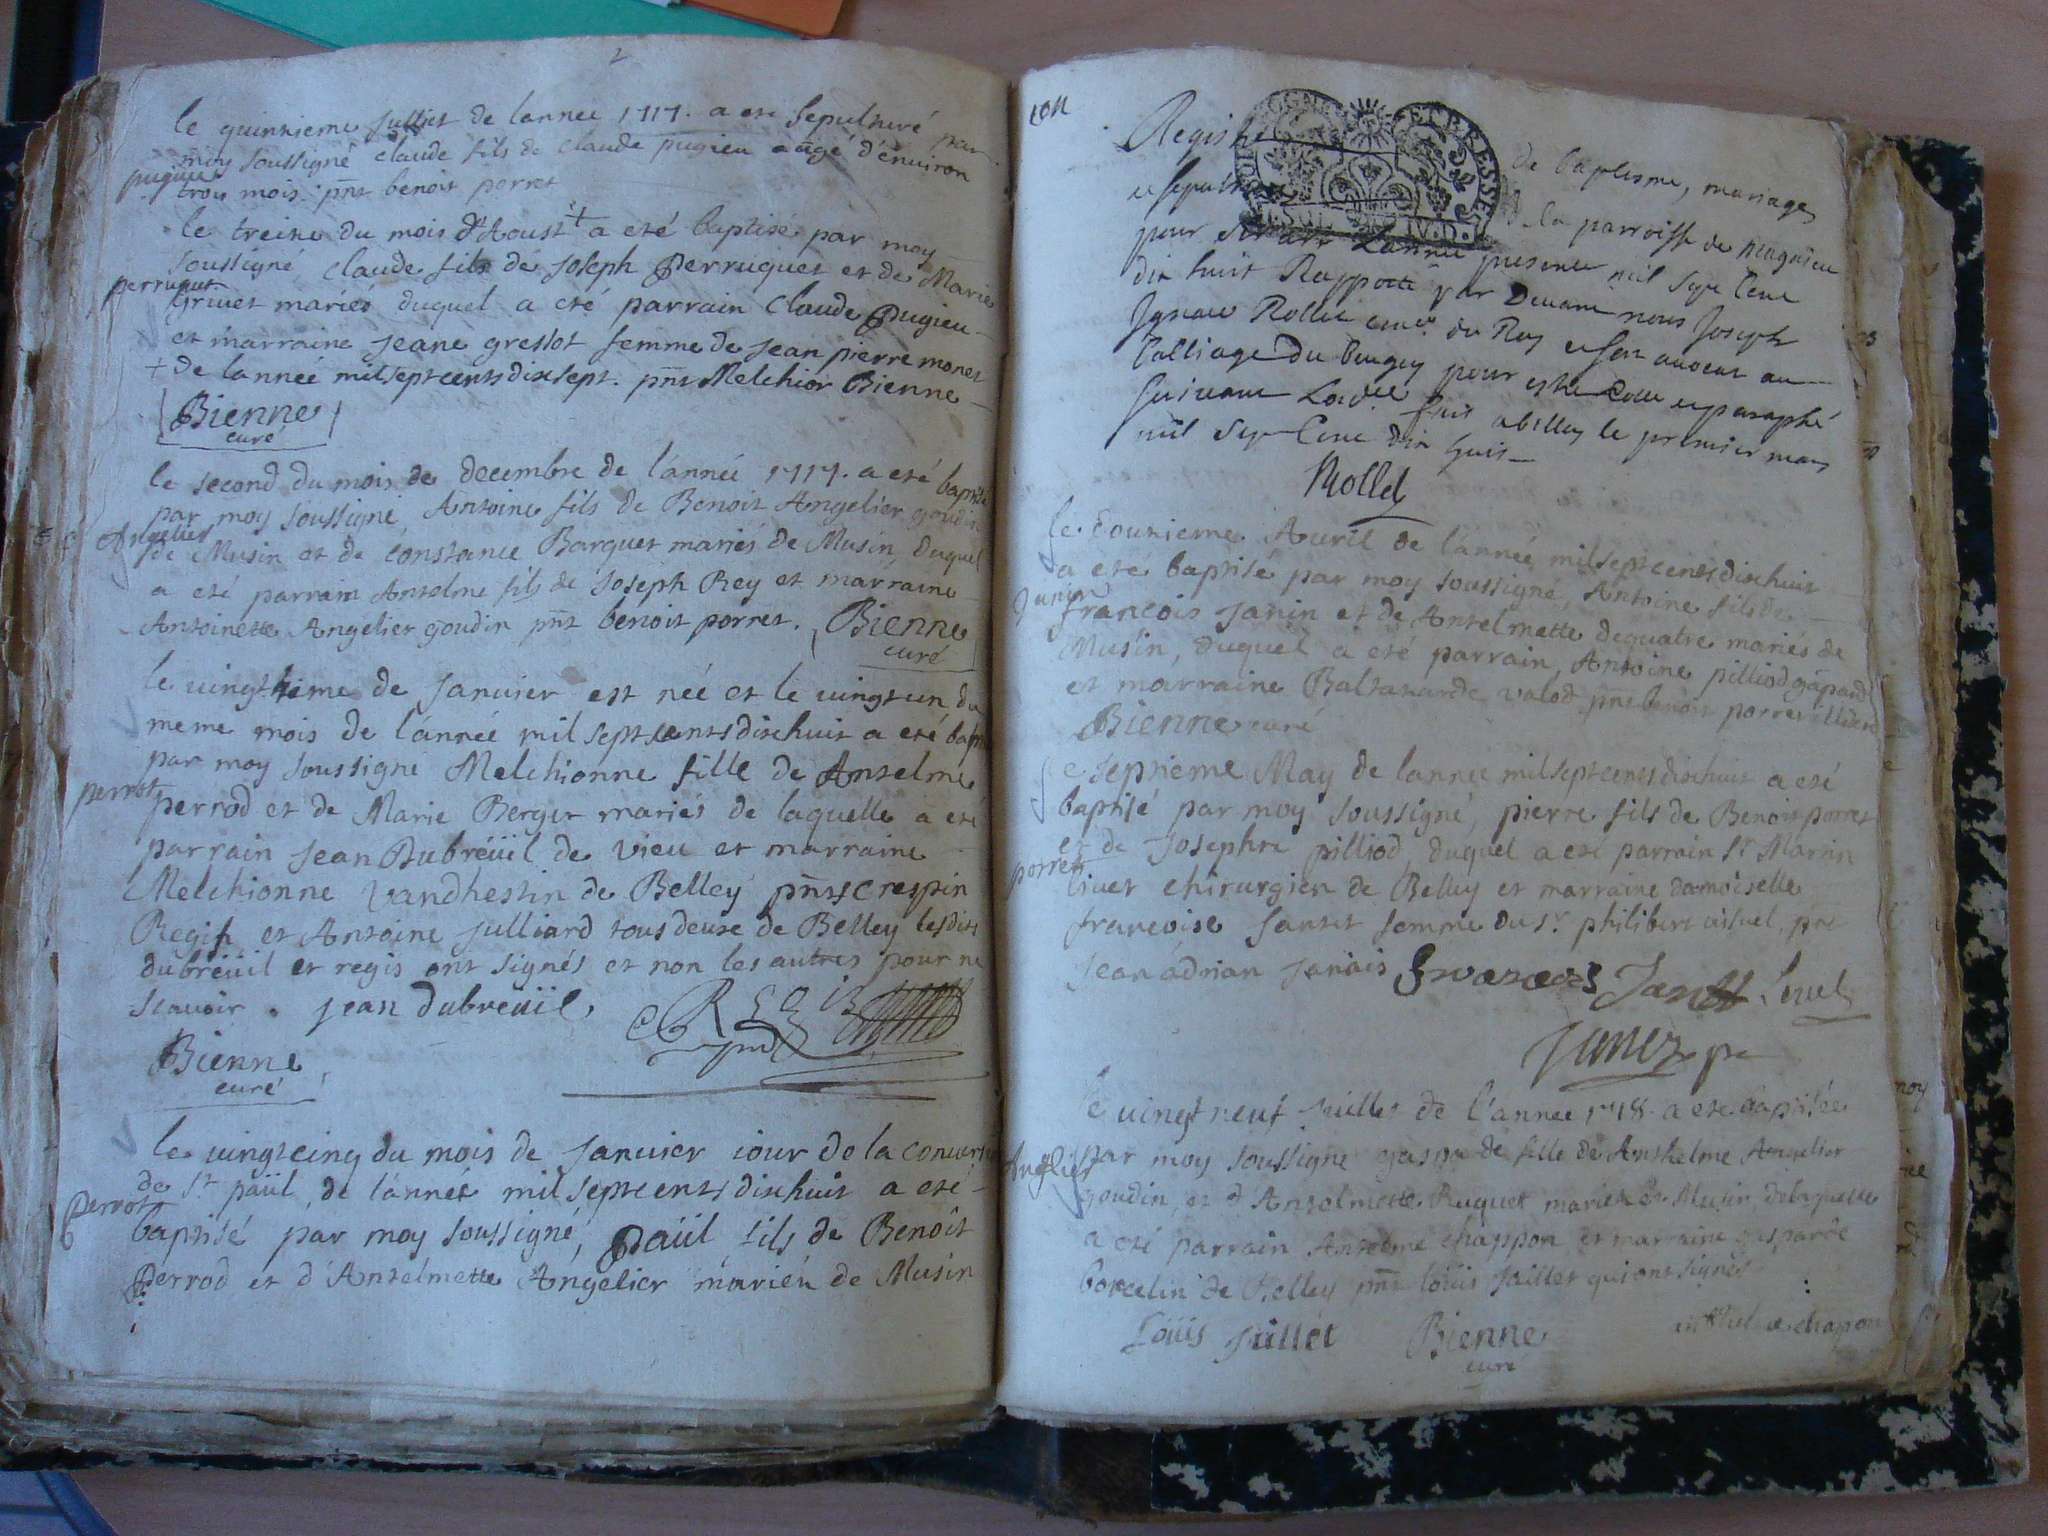 2
le quinzieme Julliet de lannee 1717. a ete sepulturé par
moy soussigné claude fils de claude pugieu aagé d'environ
pugieu
trois mois. pñt benoit perret
le treize du mois d'Aoust + a eté baptisé par moy
soussigné, claude fils de Joseph Perruquet et de Marie
perruquet
Grivet mariés duquel a eté parrain Claude Pugieu
et marraine Jeane greslot femme de Jean pierre monet
+ de lannéé mil sept cents dix sept. pñt Melchior Bienne
Bienne
curé
le second du mois de decembre de l'année 1717. a eté baptisé
par moy soussigné, Antoine fils de Benoit Angelier goudin
Angelier
de Musin et de constance Barquet mariés de Musin, duquel
a eté parrain Antelme fils de Joseph Rey et marraine
Antoinette Angelier goudin pñt benoit porret. Bienne
curé
le vingtieme de Janvier est néé et le vingt un du
meme mois de l'année mil sept cents dixhuit a eté bapti
par moy soussigné Melchionne fille de Antelme
perrot
perrod et de Marie Berger mariés de laquelle a eté
parrain Jean Dubreüil de vieu et marraine
Melchionne vandhestin de Belley pñts crespin
Regis et Antoine Julliard tous deux de Belley lesdits
dubreüil et regis ont signés et non les autres pour ne
scavoir. jean dubreuil,
C Regis
Bienne
curé
le vingtcinq du mois de Janvier iour de la convers
de St paül, de l'année mil sept cents dixhuit a eté
perrot
baptisé par moy soussigné, Paül fils de Benoît
Perrod et d'Antelmette Angelier mariéz de Musin
Registre de baptisme, mariages
et sepulture de la parroisse de magnieu
pour servir Lannee presente mil sept Cent
dix huit Rapporté par Devant nous Joseph
Ignace Rollet du Roy et son avocat au
Balliage du bugey pour estre Cotté et paraphé
suivant fait a belley le premier mars
mil sept Cent dix huit
Rollet
le douzieme Avril de l'année mil sept cents dixhuit
a eté baptisé par moy soussigné, Antoine fils de
Janin
françois Janin et de Antelmette dequatre mariés de
Musin, duquel a eté parrain, Antoine pilliod gaspard
et marraine Baltazarde valod pñt benoit porret
Bienne curé
le septieme May de lannee mil sept cents dixhuit a eté
baptisé par moy soussigné, pierre fils de Benoit porret
et de Josephte pilliod, duquel a eté parrain Sr Martin
porret
livet chirurgien de Belley et marraine damoiselle
francoise Jantet femme du Sr. philibert pñt
Jean adrian Janais
le vingt neuf Juillet de l'annee 1718. a ete baptisée
par moy soussigné gasparde fille de Anthelme Angelier
Anglier
goudin, et d'Antelmette Ruquet mariéz de Musin, delaquelle
a eté parrain Antelme chappon et marraine gasparde
borcelin de Belley pñt loüis Juillet qui ont signés
Loüis Juillet Bienne
curé
chapon